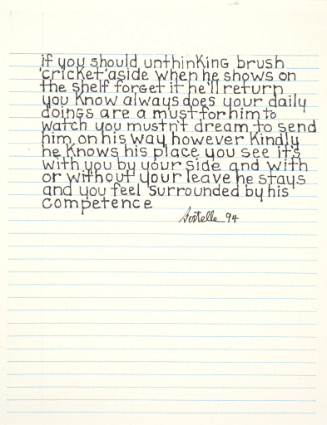 if you should unthinking brush
'cricket' aside when he shows on
the shelf forget it he'll return
you know always does your daily
doings are a must for him to
watch you mustn't dream to send
him on his way however kindly
he knows his place you see it's
with you by your side and with
or without your leave he stays
and you feel surrounded by his
competence
94